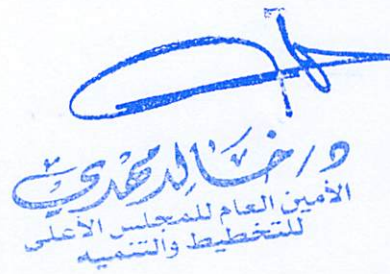 د/ خالد مهدي
الأمين العام للمجلس الأعلى
للتخطيط والتنميه